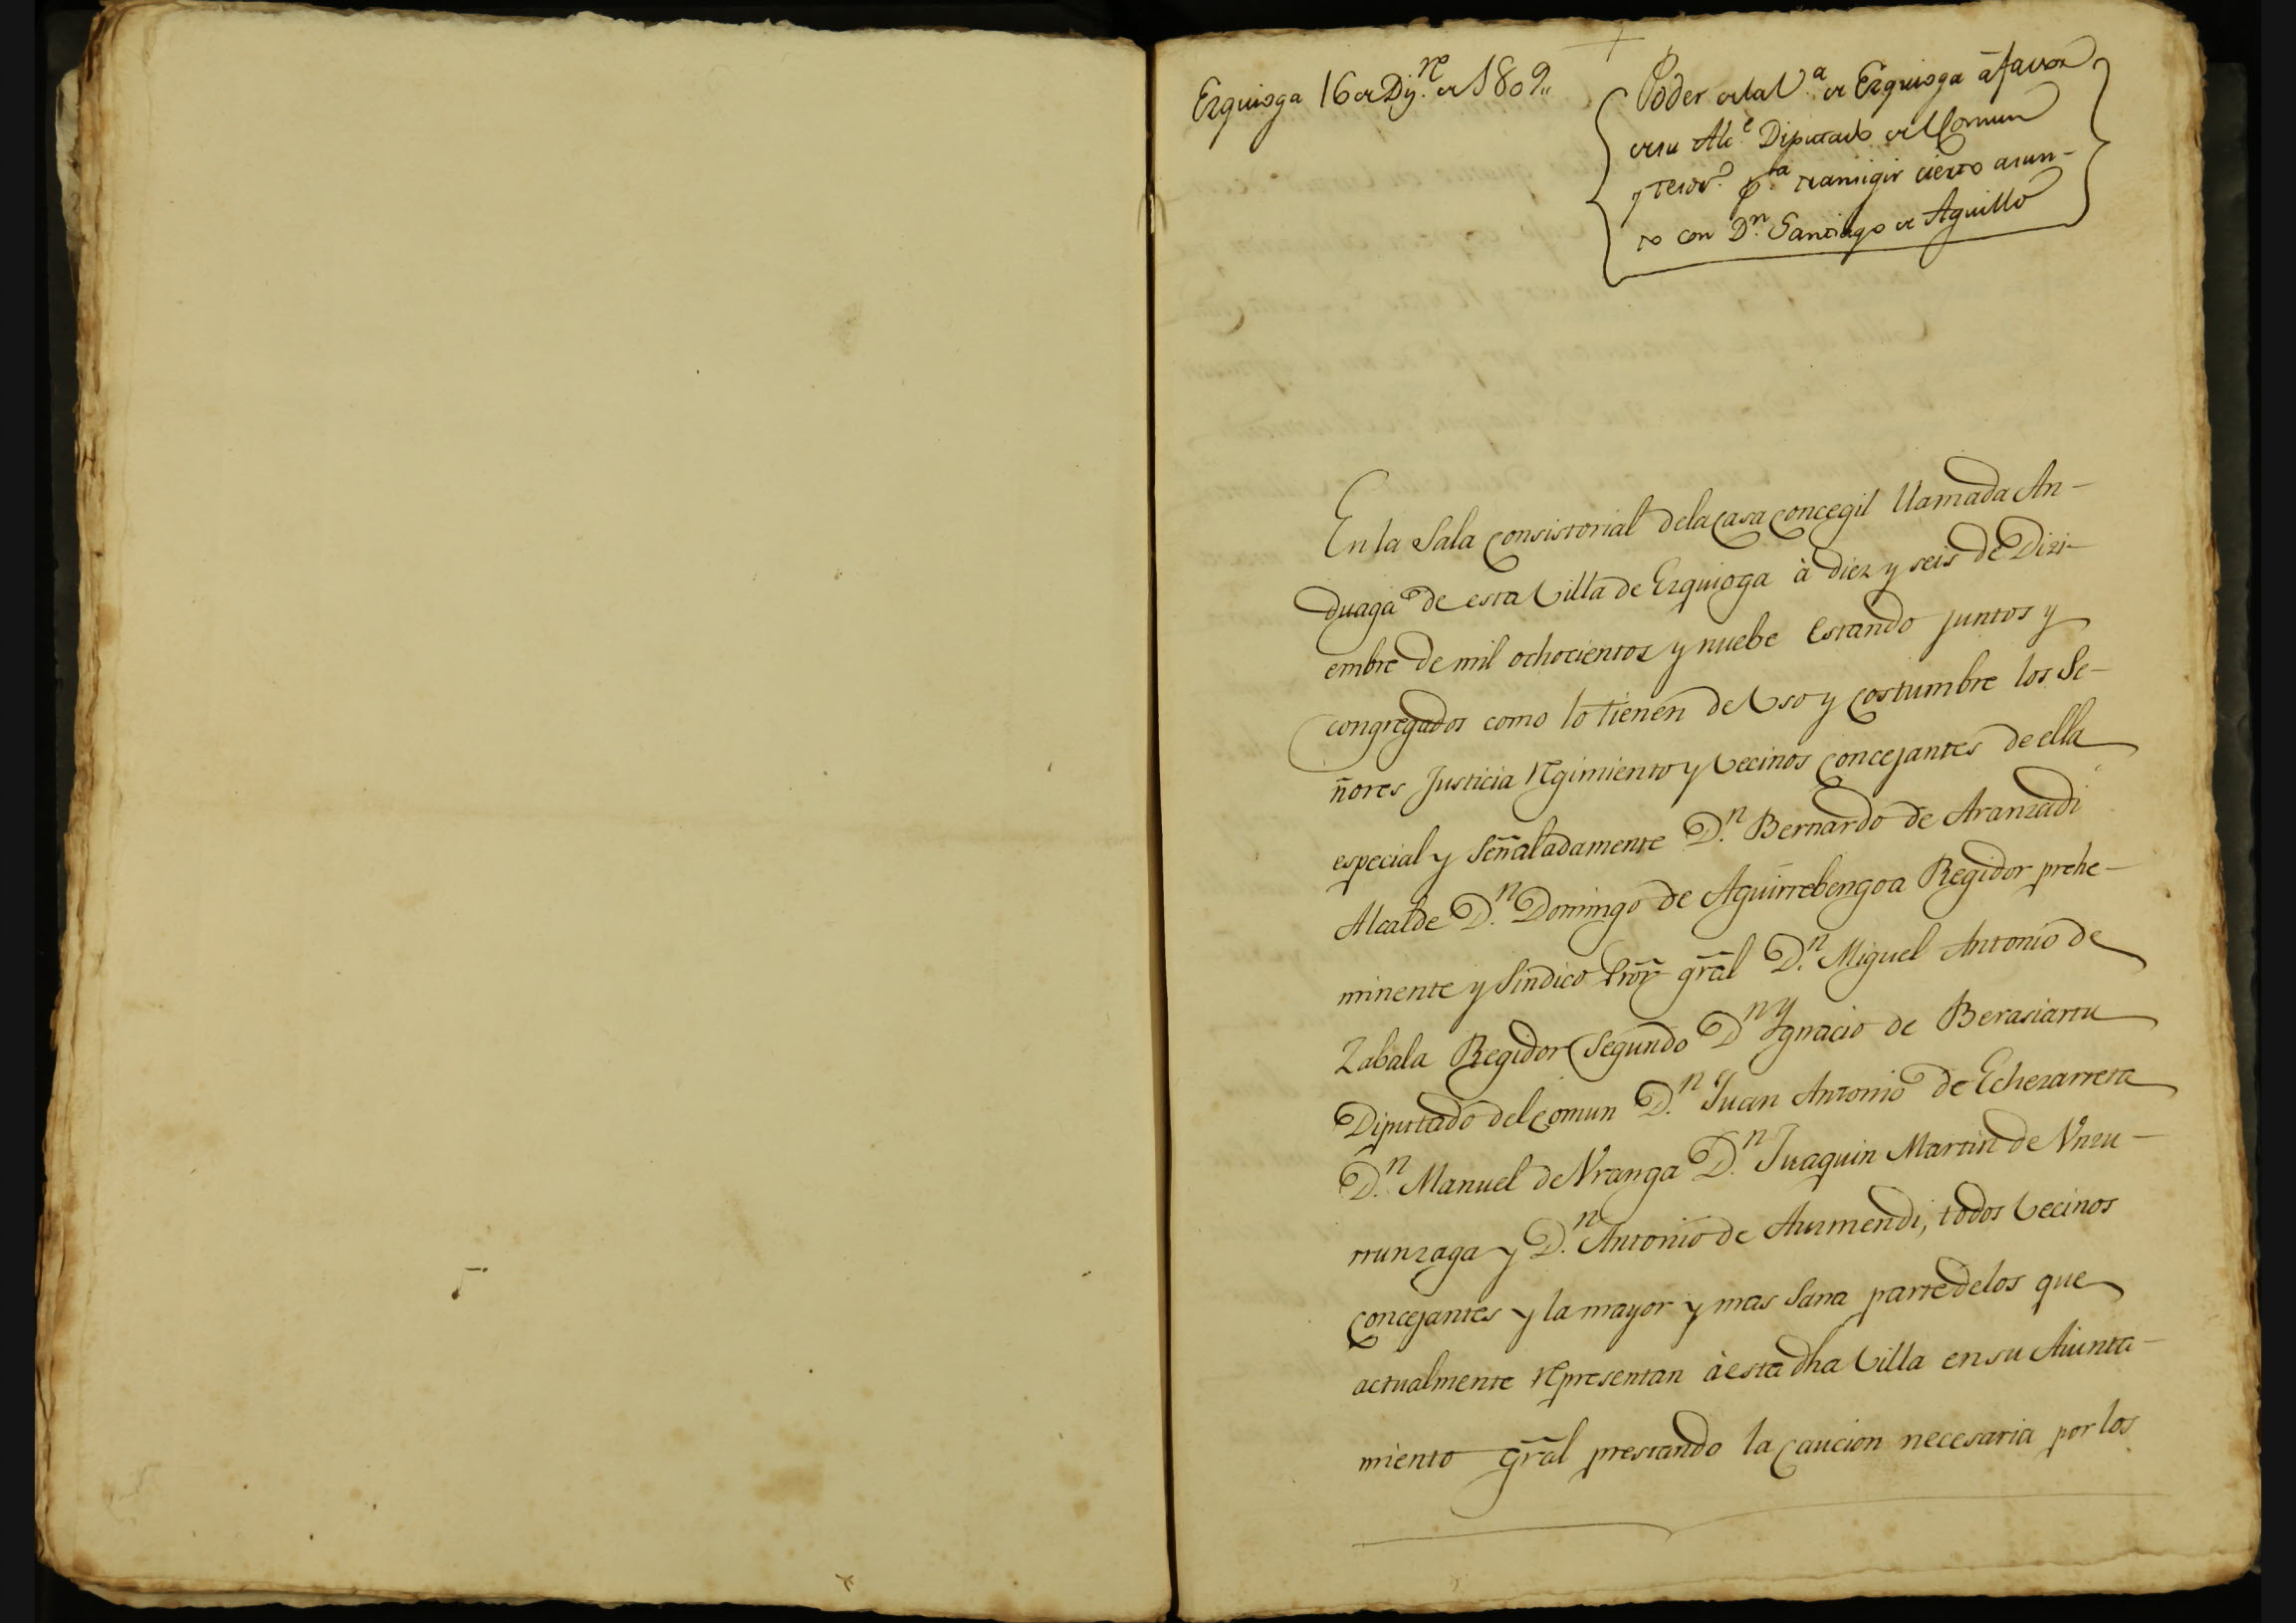 Ezquioga 16 de Diz.re de 1809„
Poder de la V.a de Ezquioga â favor
de su Alc.e Diputado del Comun
y Tesor.o p.a transigir cierto asun-
to con D.n Santiago de Aguillo
En la Sala Consistorial de la Casa Concegil llamada An-
duaga de esta Villa de Ezquioga à diez y seis de Dizi-
embre de mil ochocientos y nuebe estando juntos y
congregados como lo tienen de Vso y Costumbre los Se-
ñores Justicia Regimiento y Vecinos Concejantes de ella
especial y Señaladamente D.n Bernardo de Aranzadi
Alcalde D.n Domingo de Aguirrebengoa Regidor prehe-
minente y Sindico Pror gral D.n Miguel Antonio de
Zabala Regidor Segundo D.n Ygnacio de Berasiartu
Diputado del Comun D.n Juan Antonio de Echezarreta
D.n Manuel de Vranga D.n Juaquin Martin de Vnzu-
rrunzaga y D.n Antonio de Aizmendi, todos Vecinos
Concejantes y la mayor y mas Sana parte de los que
actualmente representan à esta dha Villa en su Aiunta-
miento gral prestando la Caucion necesaria por los